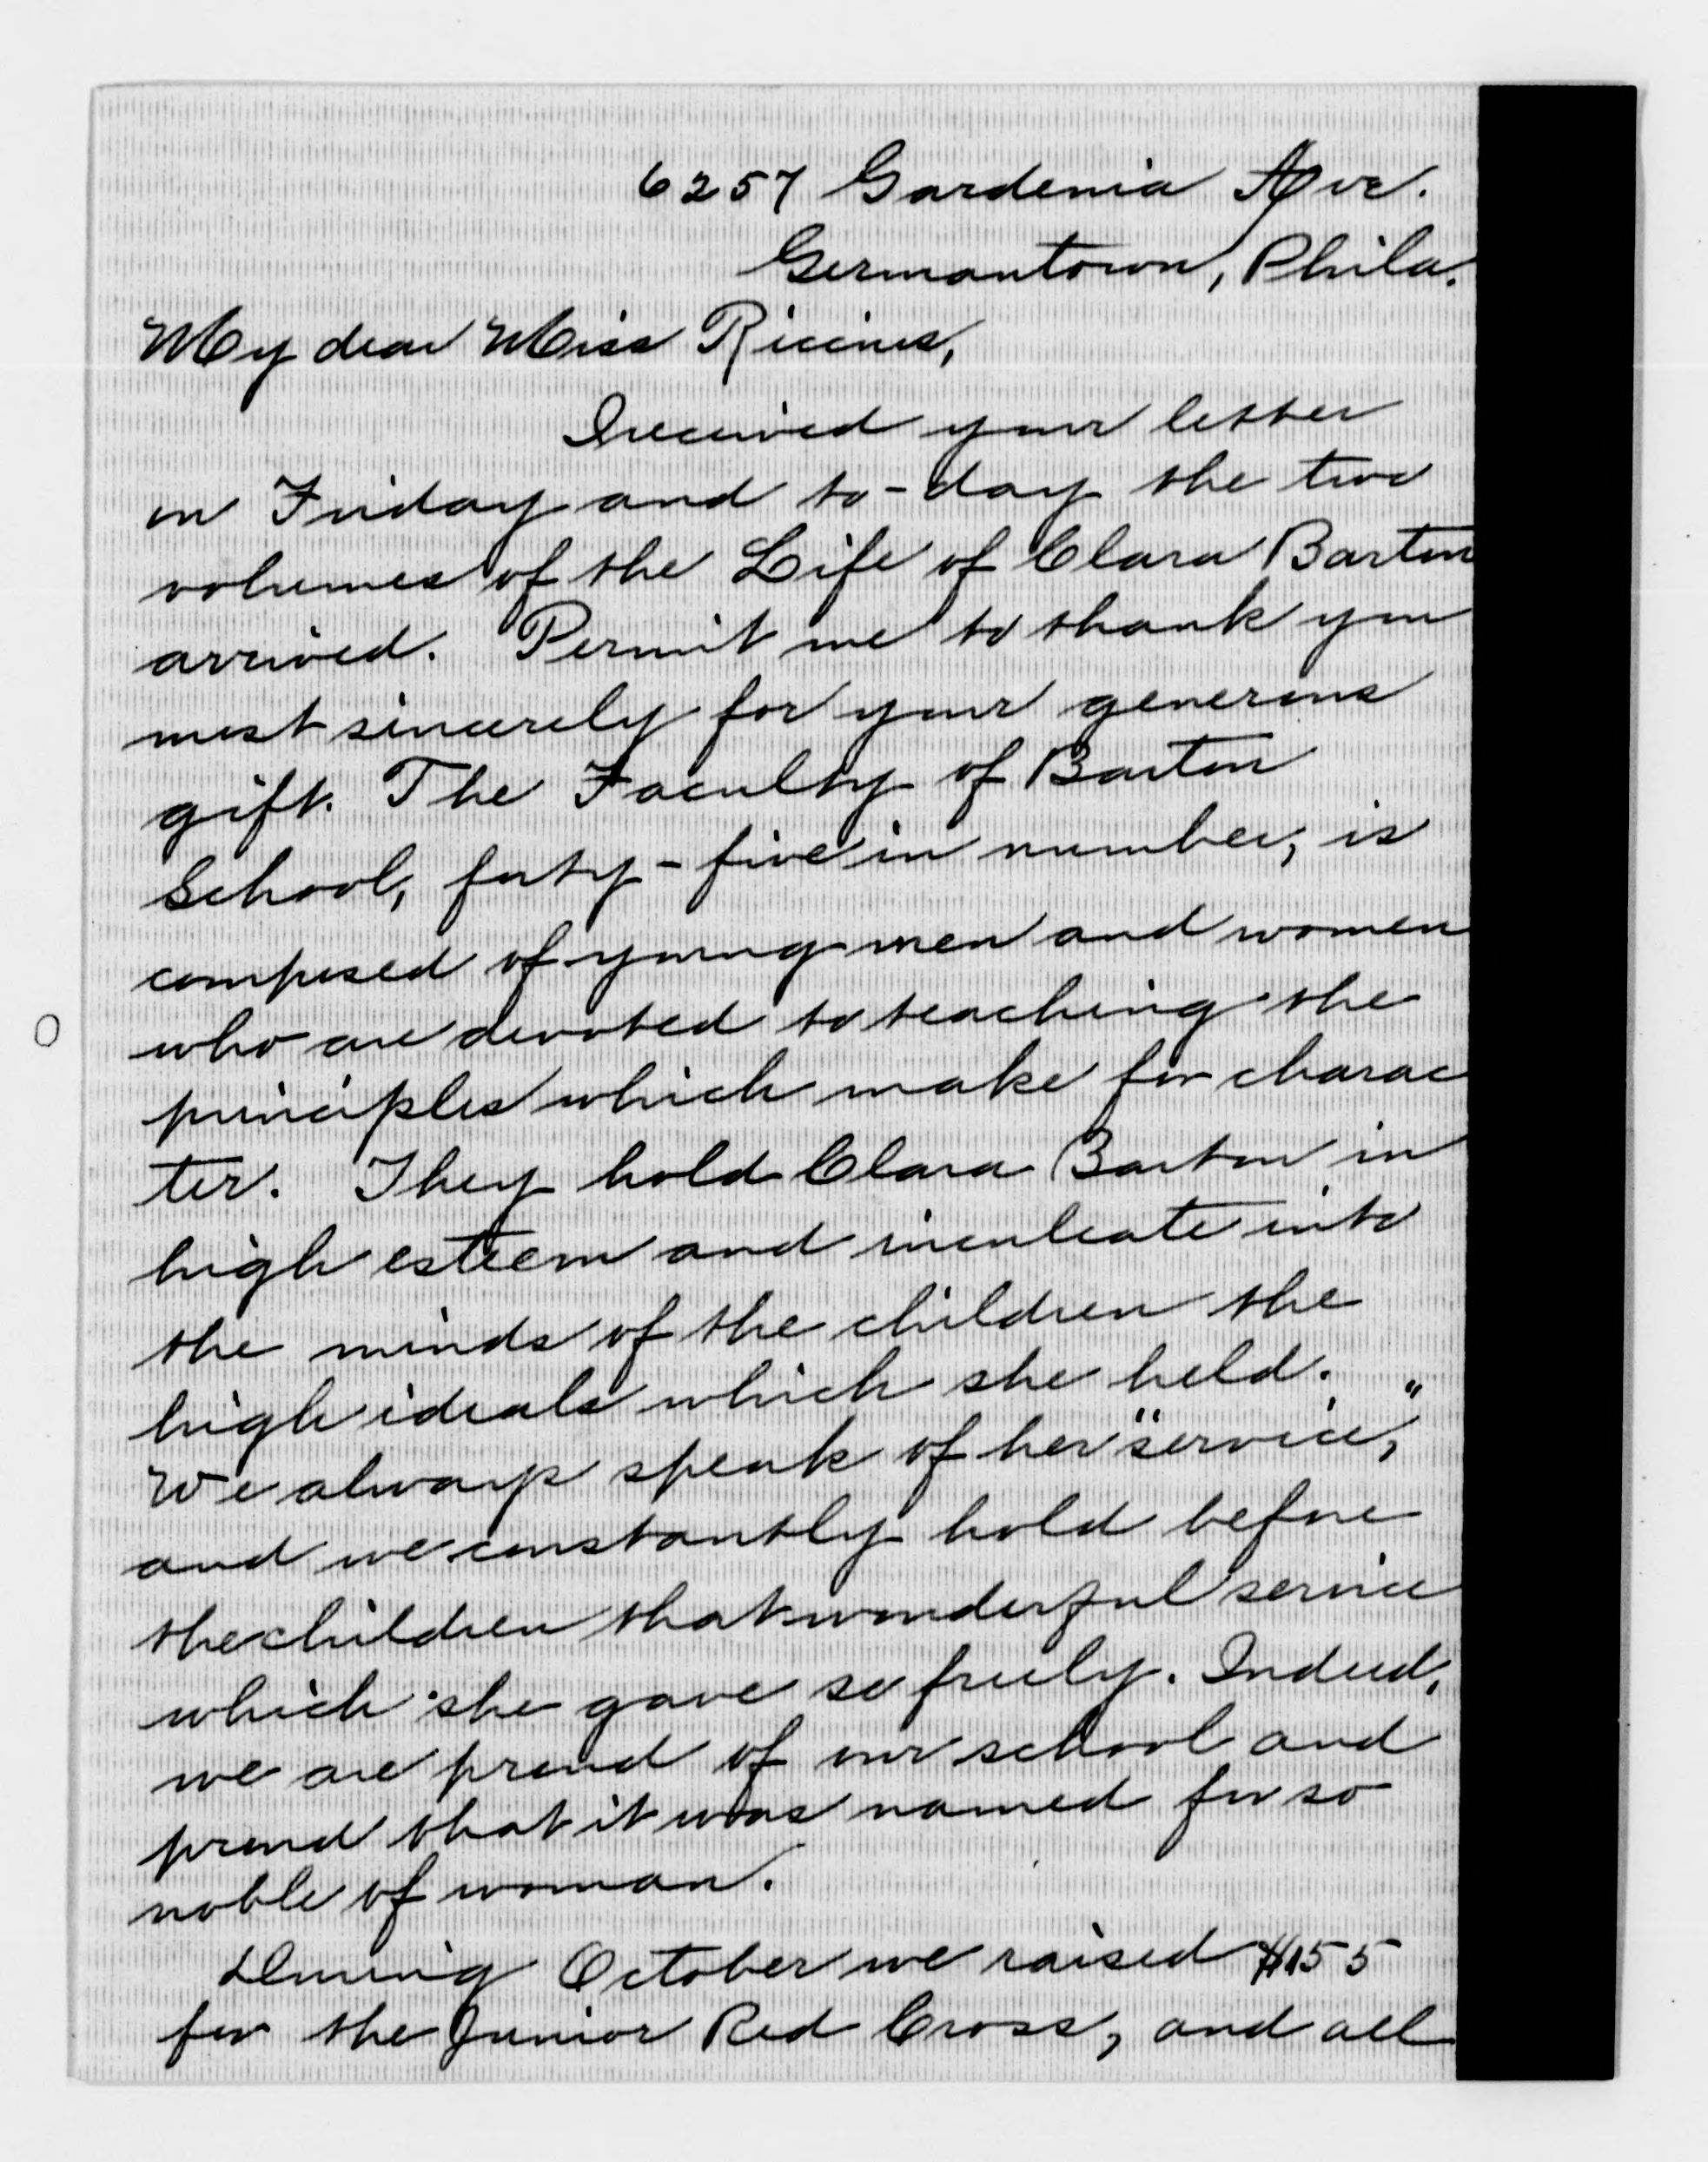 6257 Gardenia Ave.
Germantown, Phila.
My dear Miss Riccius,
I received your letter
on Friday and to-day the two
volumes of the Life of Clara Barton
arrived. Permit me to thank you
most sincerely for your generous
gift. The Faculty of Barton
School, forty-five in number, is
composed of young men and women
who are devoted to teaching the
principles which make for charac
ter. They hold Clara Barton in
high esteem and inculcate into
the minds of the children the
high ideals which she held.
We always speak of her "service,"
and we constantly hold before
the children that wonderful service
which she gave so freely. Indeed,
we are proud of our school and
proud that it was named for so
noble of woman.
During October we raised $155
for the Junior Red Cross, and all